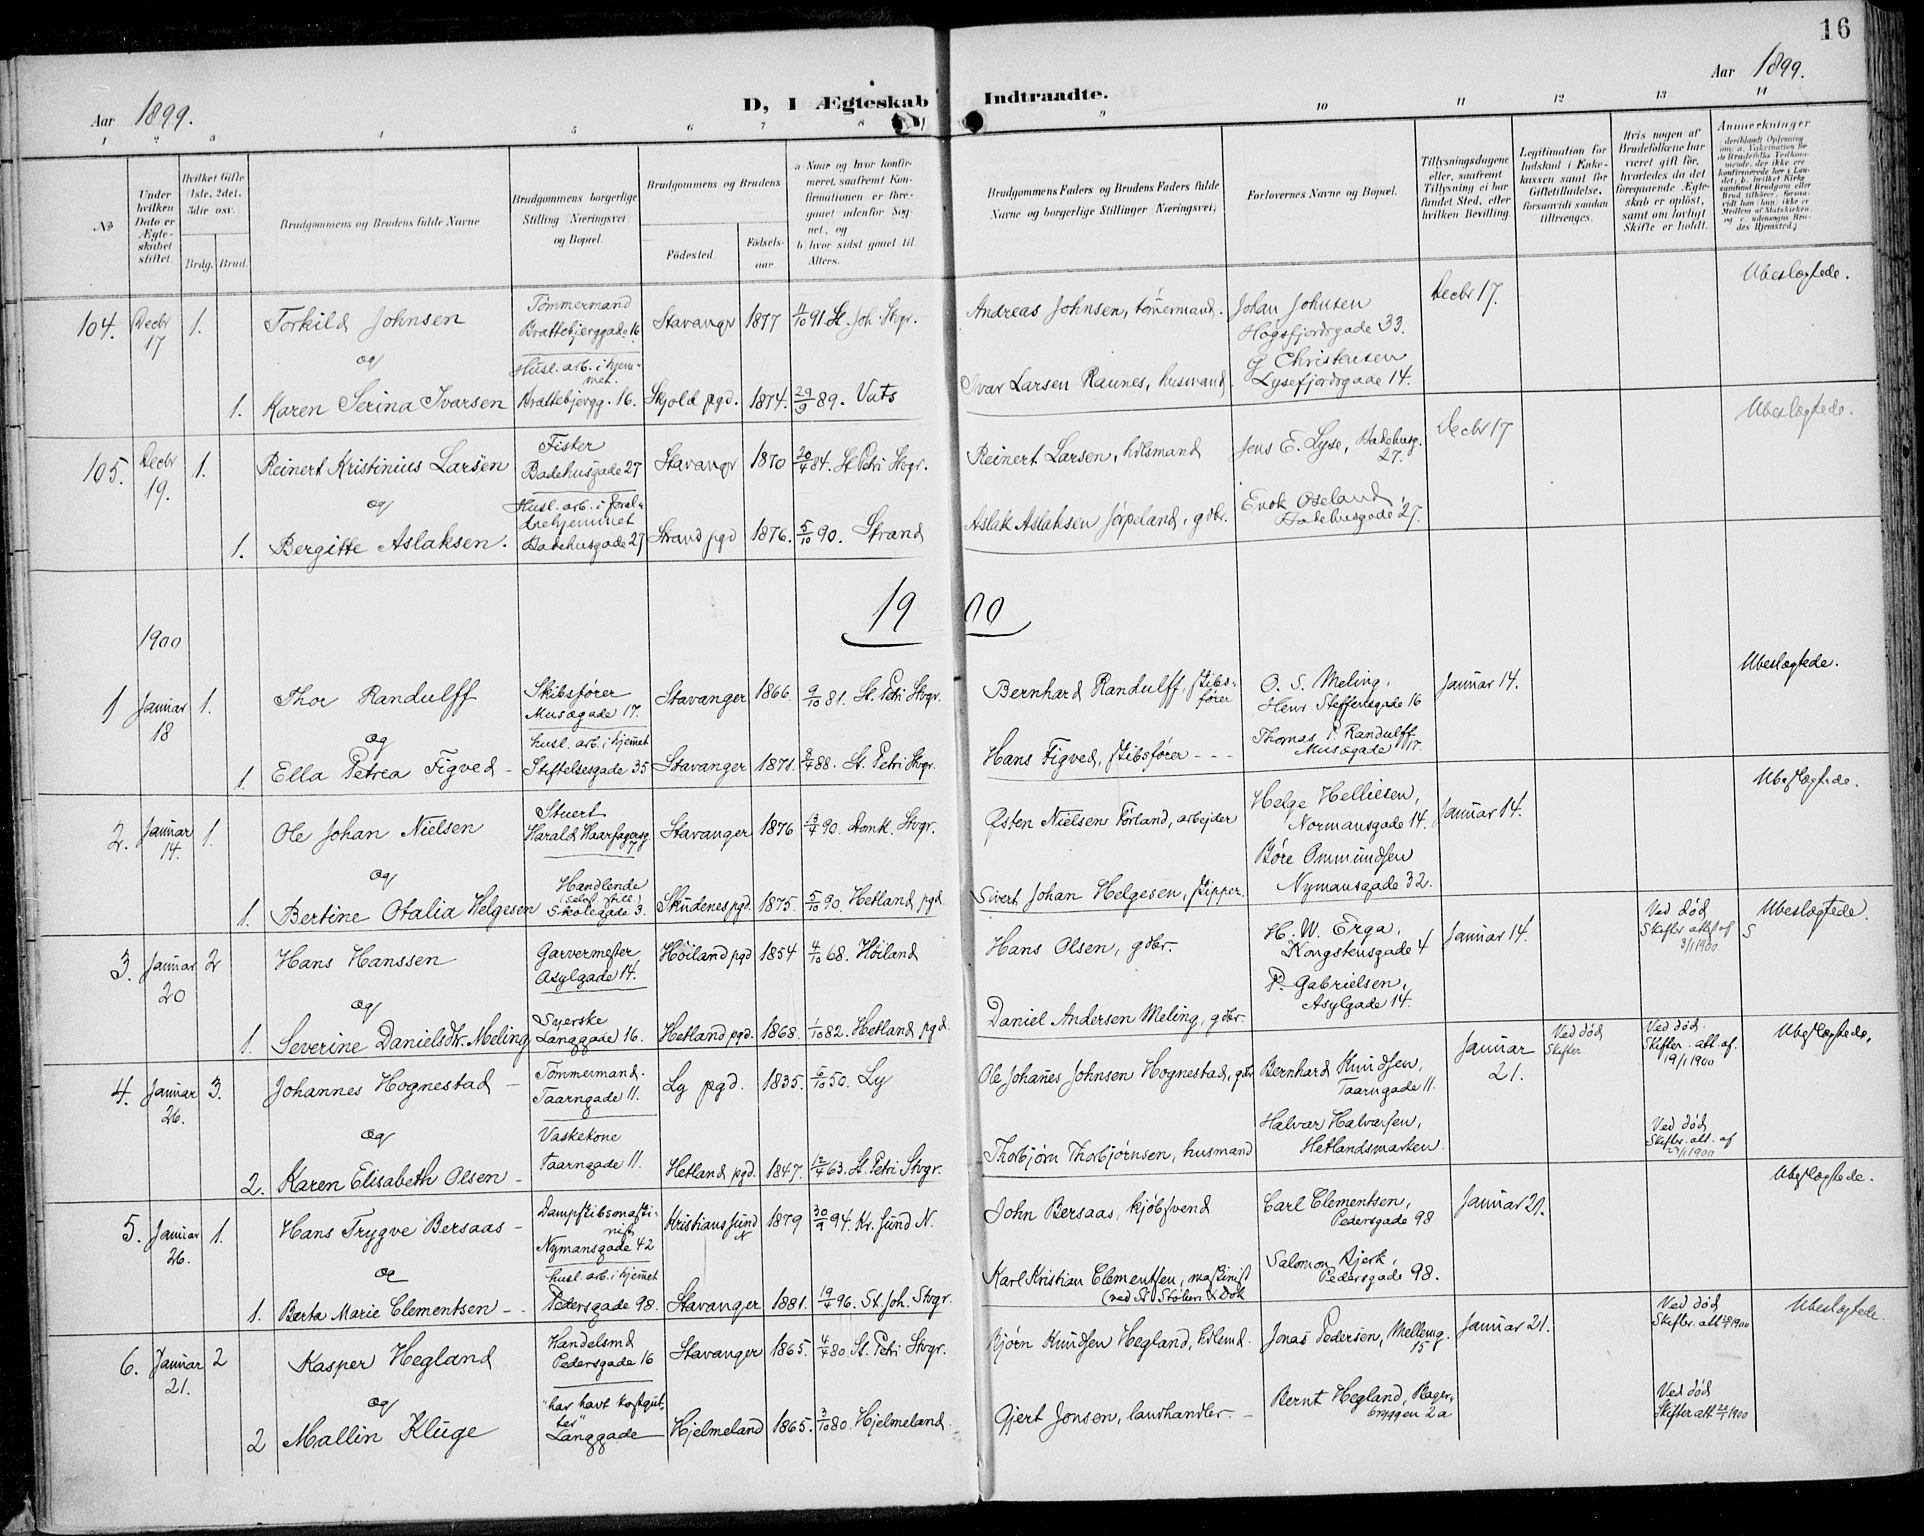 16
Aar 1899.
D, I Ægteskab Indtraadte.
Aar 1899.
1 2 3 4 5 6 7 8 9 10 11 12 13 14
№
Under hvilken Dato er Ægteskabet stiftet.
Hvilket Gifte 1ste, 2det, 3die osv.
Brdg. Brud.
Brudgommens og Brudens fulde Navne
Brudgommens borgerlige Stilling (Næringsvei) og Bopæl.
Brudgommens og Brudens
Födested.
Födsels-aar.
a. Naar og hvor konfirmeret, saafremt Konfirmationen er foregaaet udenfor Sognet, og
b. hvor sidst gaaet til Alters.
Brudgommens Faders og Brudens Faders fulde Navne og borgerlige Stillinger (Næringsvei)
Forlovernes Navne og Bopæl.
Tillysningsdagene eller, saafremt Tillysning ei har fundet Sted, efter hvilken Bevilling.
Legitimation for Indskud i Enkekassen samt for Giftetilladelse, forsaavidt saadan tiltrænges.
Hvis nogen af Brudefolkene har været gift før, hvorledes da det foregaaende Ægteskab er oplöst, samt om lovligt Skifte er holdt.
Anmærkninger
104. Decbr 17 1. Torkild Johnsen Tömmermand Brattebjerggade 16. Stavanger 1877 4/10 91. St. Joh. Stvgr. Andreas Johnsen, tömermand. Johan Johnsen Høgsfjordsgade 33. Decbr 17. Ubeslægtede.
og
1. Karen Serina Ivarsen Husl. arb. i hjemmet. Brattebjergg. 16. Skjold pgd. 1874. 29/9 89. Vats Ivar Larsen Raunes, husmand G Christensen Lysefjordsgade 14.
105. Decbr 19. 1. Reinert Kristinius Larsen Fisker Badehusgade 27 Stavanger 1870 20/4 84. St Petri Stvgr. Reinert Larsen, hdlsmand Jens E. Lyse, Badehusg. 27. Decbr 17 Ubeslægtede.
og
1. Bergitte Aslaksen. Husl. arb. i forældrehjemmet Badehusgade 27 Strand pgd 1876. 5/10 90. Strand Aslak Aslaksen Jørpeland, gdbr. Enok Oseland, Badehusgade 27.
1900
1900
1 Januar 18 1. Thor Randulff Skibsfører Musægade 17. Stavanger 1866. 9/10 81. St. Petri Stvgr. Bernhard Randulff, skibsfører O. S. Meling, Henr. Steffensgade 16 Januar 14. Ubeslægtede.
og
1. Ella Petrea Figved husl. arb. i hjemet Stiftelsesgade 35 Stavanger 1871. 8/4 88. St. Petri Stvgr. Hans Figved, skibsfører Thomas P. Randulff Musægade 17.
2. Januar 14. 1. Ole Johan Nielsen Stuert Harald Haarfagersg 7 Stavanger 1876 13/4 90. Domk. Stvgr. Østen Nielsen Førland, arbejder Helge Helliesen, Normansgade 14. Januar 14. Ubeslægtede.
og
1. Bertine Otalia Helgesen Handlende (selvst still) Skolegade 3. Skudenes pgd. 1875. 5/10 90. Hetland pgd Sivert Johan Helgesen, skipper. Børe Ommundsen Nymansgade 32.
3. Januar 20 2 Hans Hanssen Garvermester Asylgade 14. Höiland pgd 1854 4/10 68. Höiland Hans Olsen, gdbr. H. W. Erga, Kongstensgade 4 Januar 14. Ved död Skiftbr. attest af 3/1 1900. Ubeslægtede.
og
1. Severine Danielsdtr. Meling Syerske Langgade 16. Hetland pgd. 1868. 1/10 82. Hetland pgd. Daniel Andersen Meling, gdbr. P. Gabrielsen, Asylgade 14.
4. Januar 26. 3. Johannes Hognestad Tömmermand. Taarngade 11. Ly pgd. 1835. 6/10 50. Ly Ole Johanes Johnsen Hognestad, gdbr. Bernhard Knudsen, Taarngade 11. Januar 21. Ved död Skifter Ved död. Skiftbr. att. af. 19/1 1900 Ubeslægtede.
og
2. Karen Elisabeth Olsen Vaskekone Taarngade 11. Hetland pgd. 1847. 12/4 63. St. Petri Stvgr. Thorbjørn Thorbjørnsen, husmand Halvar Halvarsen, Hetlandsmarken. Ved död Skiftbr. att. af 1900
5. Januar 26. 1. Hans Trygve Bersaas Dampskibsmaskinist Nymansgade 42 Kristianssund N 1879 30/9 94. Kr. sund N. John Bersaas, kjøbsvend Carl Clementsen, Pedersgade 98 Januar 21. Ubeslægtede.
og
1. Berta Marie Clementsen husl. arb. i hjemet Pedersgade 98. Stavanger 1881. 19/4 96. St. Joh. Stvgr. Karl Kristian Clementsen, maskinist (ved St. Støberi & Dok Salomon Bjerk, Pedersgade 98.
6. Januar 21. 2 Kasper Hegland Handelsmd Pedersgade 16 Stavanger 1865. 4/4 80. St. Petri Stvgr. Bjørn Knudsen Hegland, hdlsmd. Jonas Pedersen, Mellemg. 15 Januar 21. Ved död Skiftbr. att 1900 Ubeslægtede.
og
2 Mallin Kluge "har havt kostgutter" Langgade Hjelmeland 1865. 3/10 80. Hjelmeland. Gjert Jonsen, landhandler. Bernt Hegland, Blagerbryggen 2a Ved död Skifter att 1900